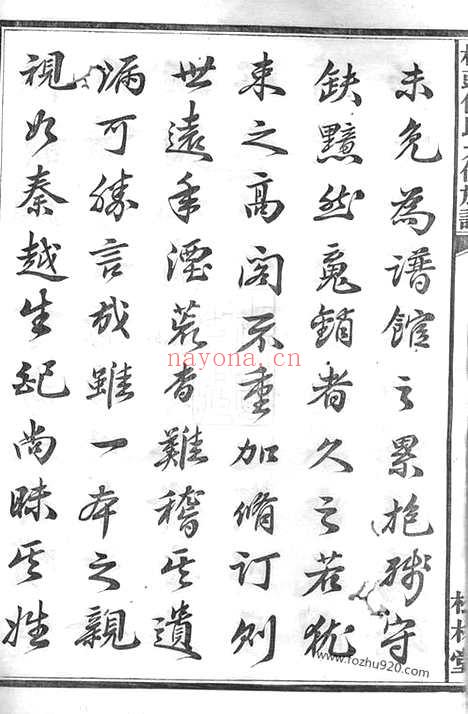 未免為譜館之累抱殘守
缺黯然魂銷者久之若猶
束之高閣不重加脩訂則
世遠年湮荒杳難稽其遺
漏可勝言哉雖一本之親
視如秦越生紀尚昧其姓
nayona.cn
www.fozhu920.com